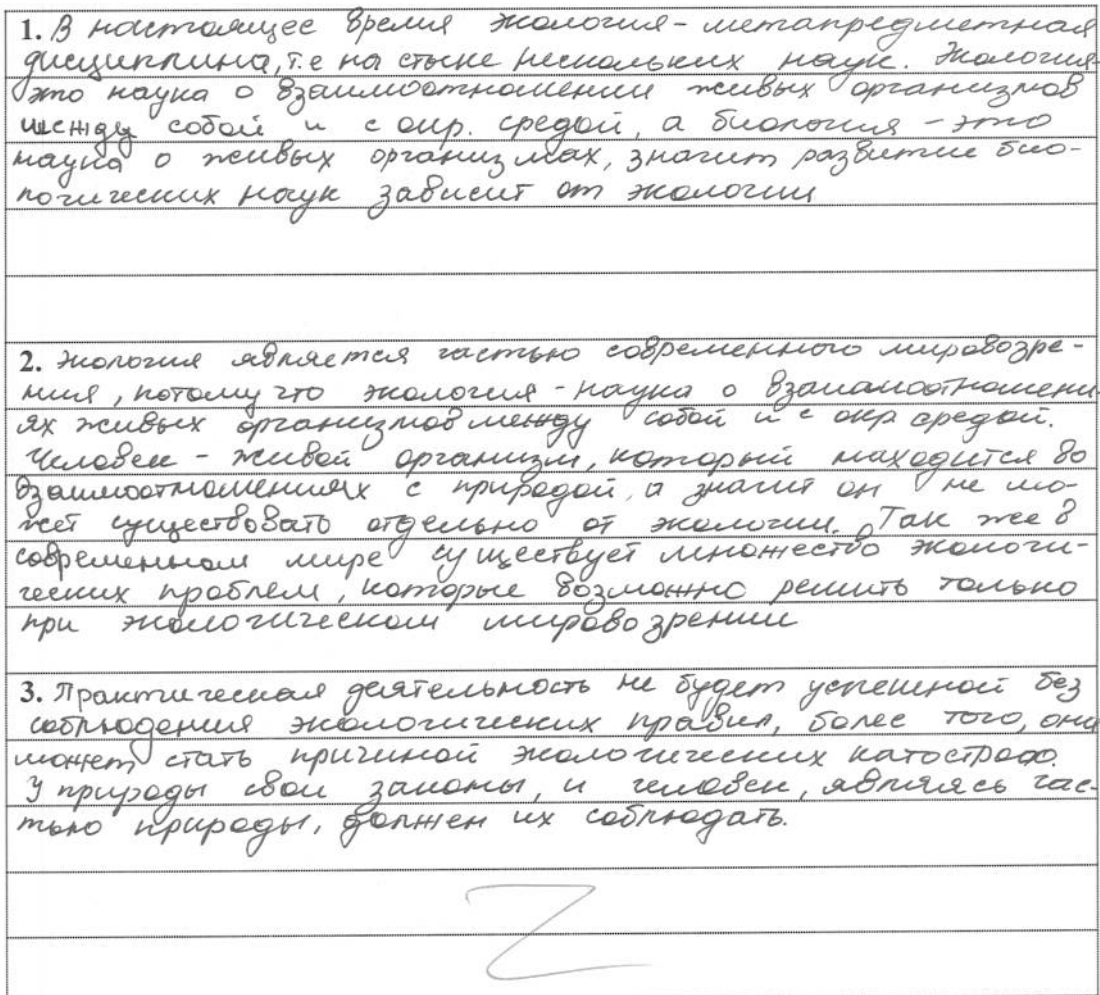 1. В настоящее время экология - метапредметная
дисциплина, т.е на стыке нескольких наук. Экология-
это наука о взаимоотношении живых организмов
между собой и с окр. средой, а биология - это
наука о живых организмах, значит развитие био-
логических наук зависит от экологии
2. Экология является частью современного мировозре-
ния, потому что экология - наука о взаимоотношени-
ях живых организмов между собой и с окр средой.
Человек - живой организм, который находится во
взаимоотношениях с природой, а значит он не мо-
жет существовать отдельно от экологии. Так же в
современном мире существует множество экологи-
ческих проблем, которые возможно решить только
при экологическом мировозрении
3. Практическая деятельность не будет успешной без
соблюдения экологических правил, более того, она
может стать причиной экологических катостроф.
У природы свои законы, и человек, являясь час-
тью природы, должен их соблюдать.